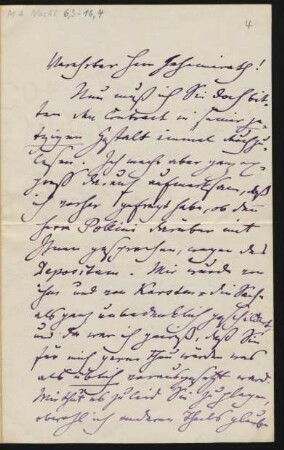 M4 Nachl 6,3-16,4
4
Verehrter Herr Geheimrath!
Nun muß ich Sie doch bit-
ten den Contract in seiner je-
tzigen Gestalt einmal
lesen. Ich mache aber ganz ex-
preß darauf aufmerksam, daß
ich vorher gefragt habe, ob denn
Herr Pollini darüber mit
Ihnen gesprochen, wegen des
Depositum. Mir wurde von
ihm und von Karsten die Sache
als ganz unbedenklich geschildert,
und da war ich gewiß, daß Sie
für mich gerne thun würden was
als üblich vorausgesetzt ward.
Mir thut es zu leid Sie zu plagen,
obwohl ich anderen Theils glaube